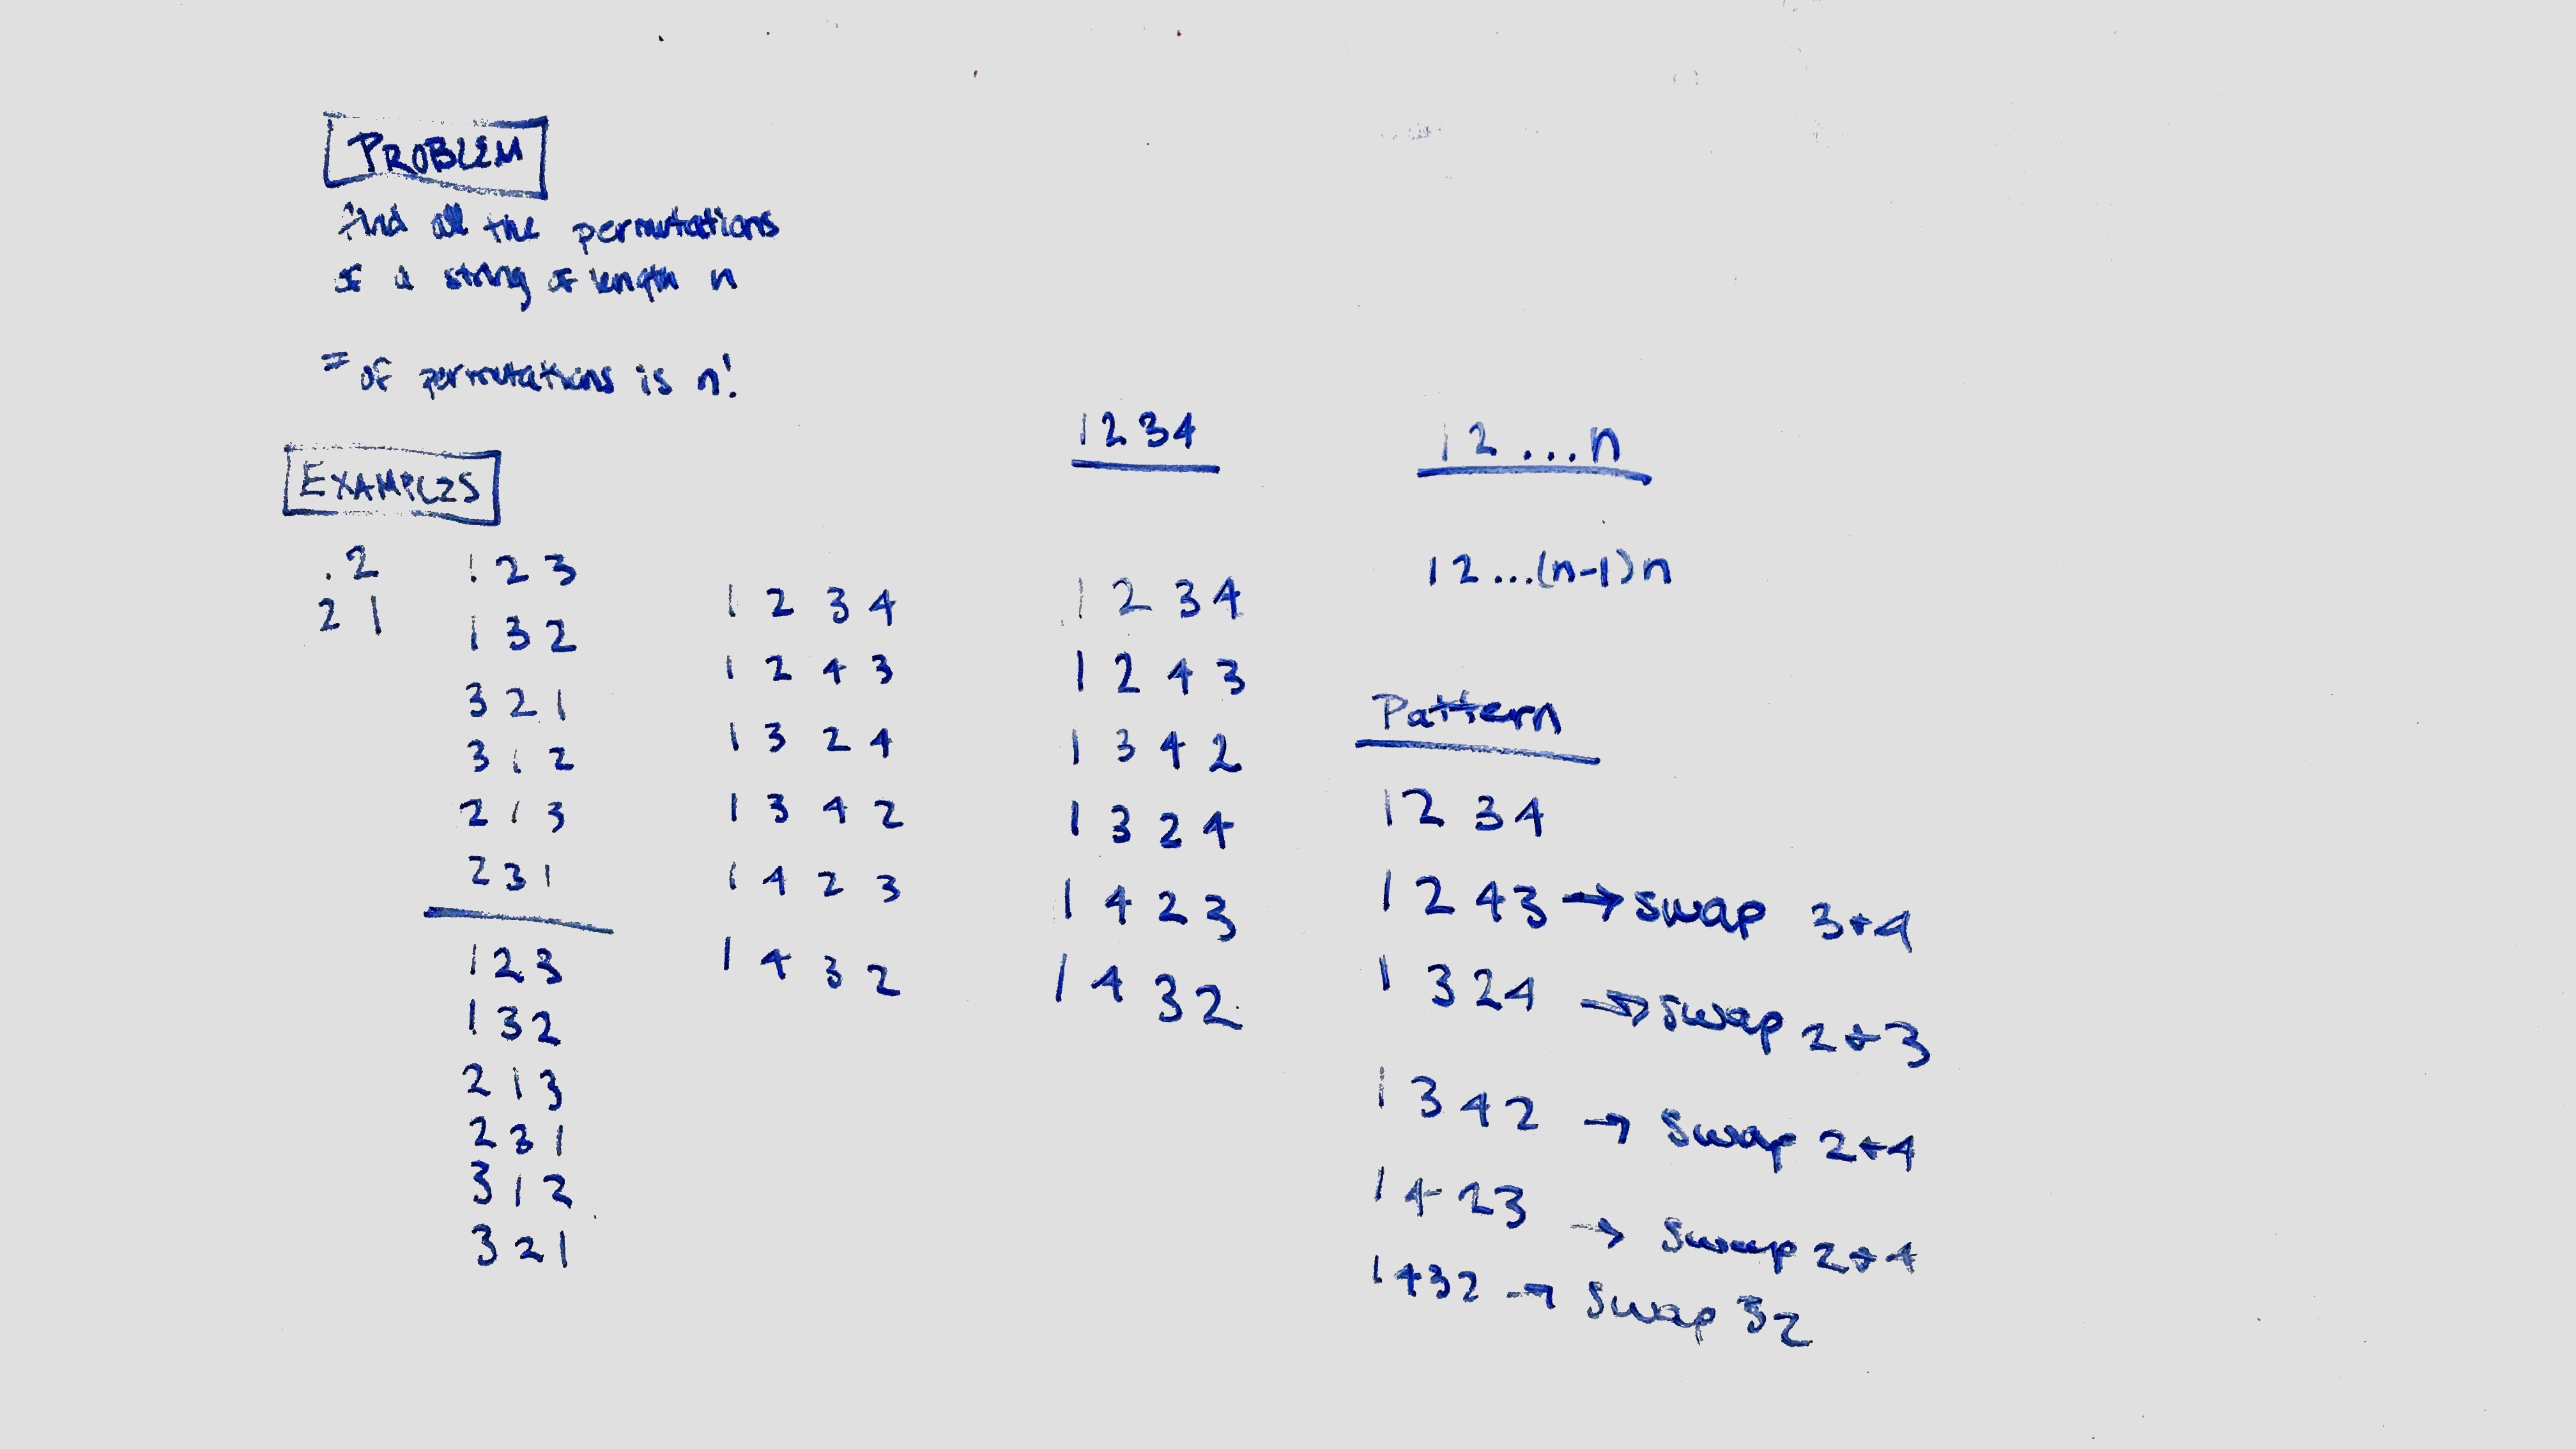 PROBLEM
find all the permutations
of a string of length n
= of permutations is n!
EXAMPLES
. 2
2 1
1 2 3
1 3 2
3 2 1
3 1 2
2 1 3
2 3 1
1 2 3
1 3 2
2 1 3
2 3 1
3 1 2
3 2 1
1 2 3 4
1 2 4 3
1 3 2 4
1 3 4 2
1 4 2 3
1 4 3 2
1 2 3 4
1 2 3 4
1 2 4 3
1 3 4 2
1 3 2 4
1 4 2 3
1 4 3 2
1 2 ... n
1 2 ... (n-1) n
Pattern
1 2 3 4
1 2 4 3 → swap 3+4
1 3 2 4 → swap 2+3
1 3 4 2 → swap 2+4
1 4 2 3 → swap 2+4
1 4 3 2 → swap 3 2